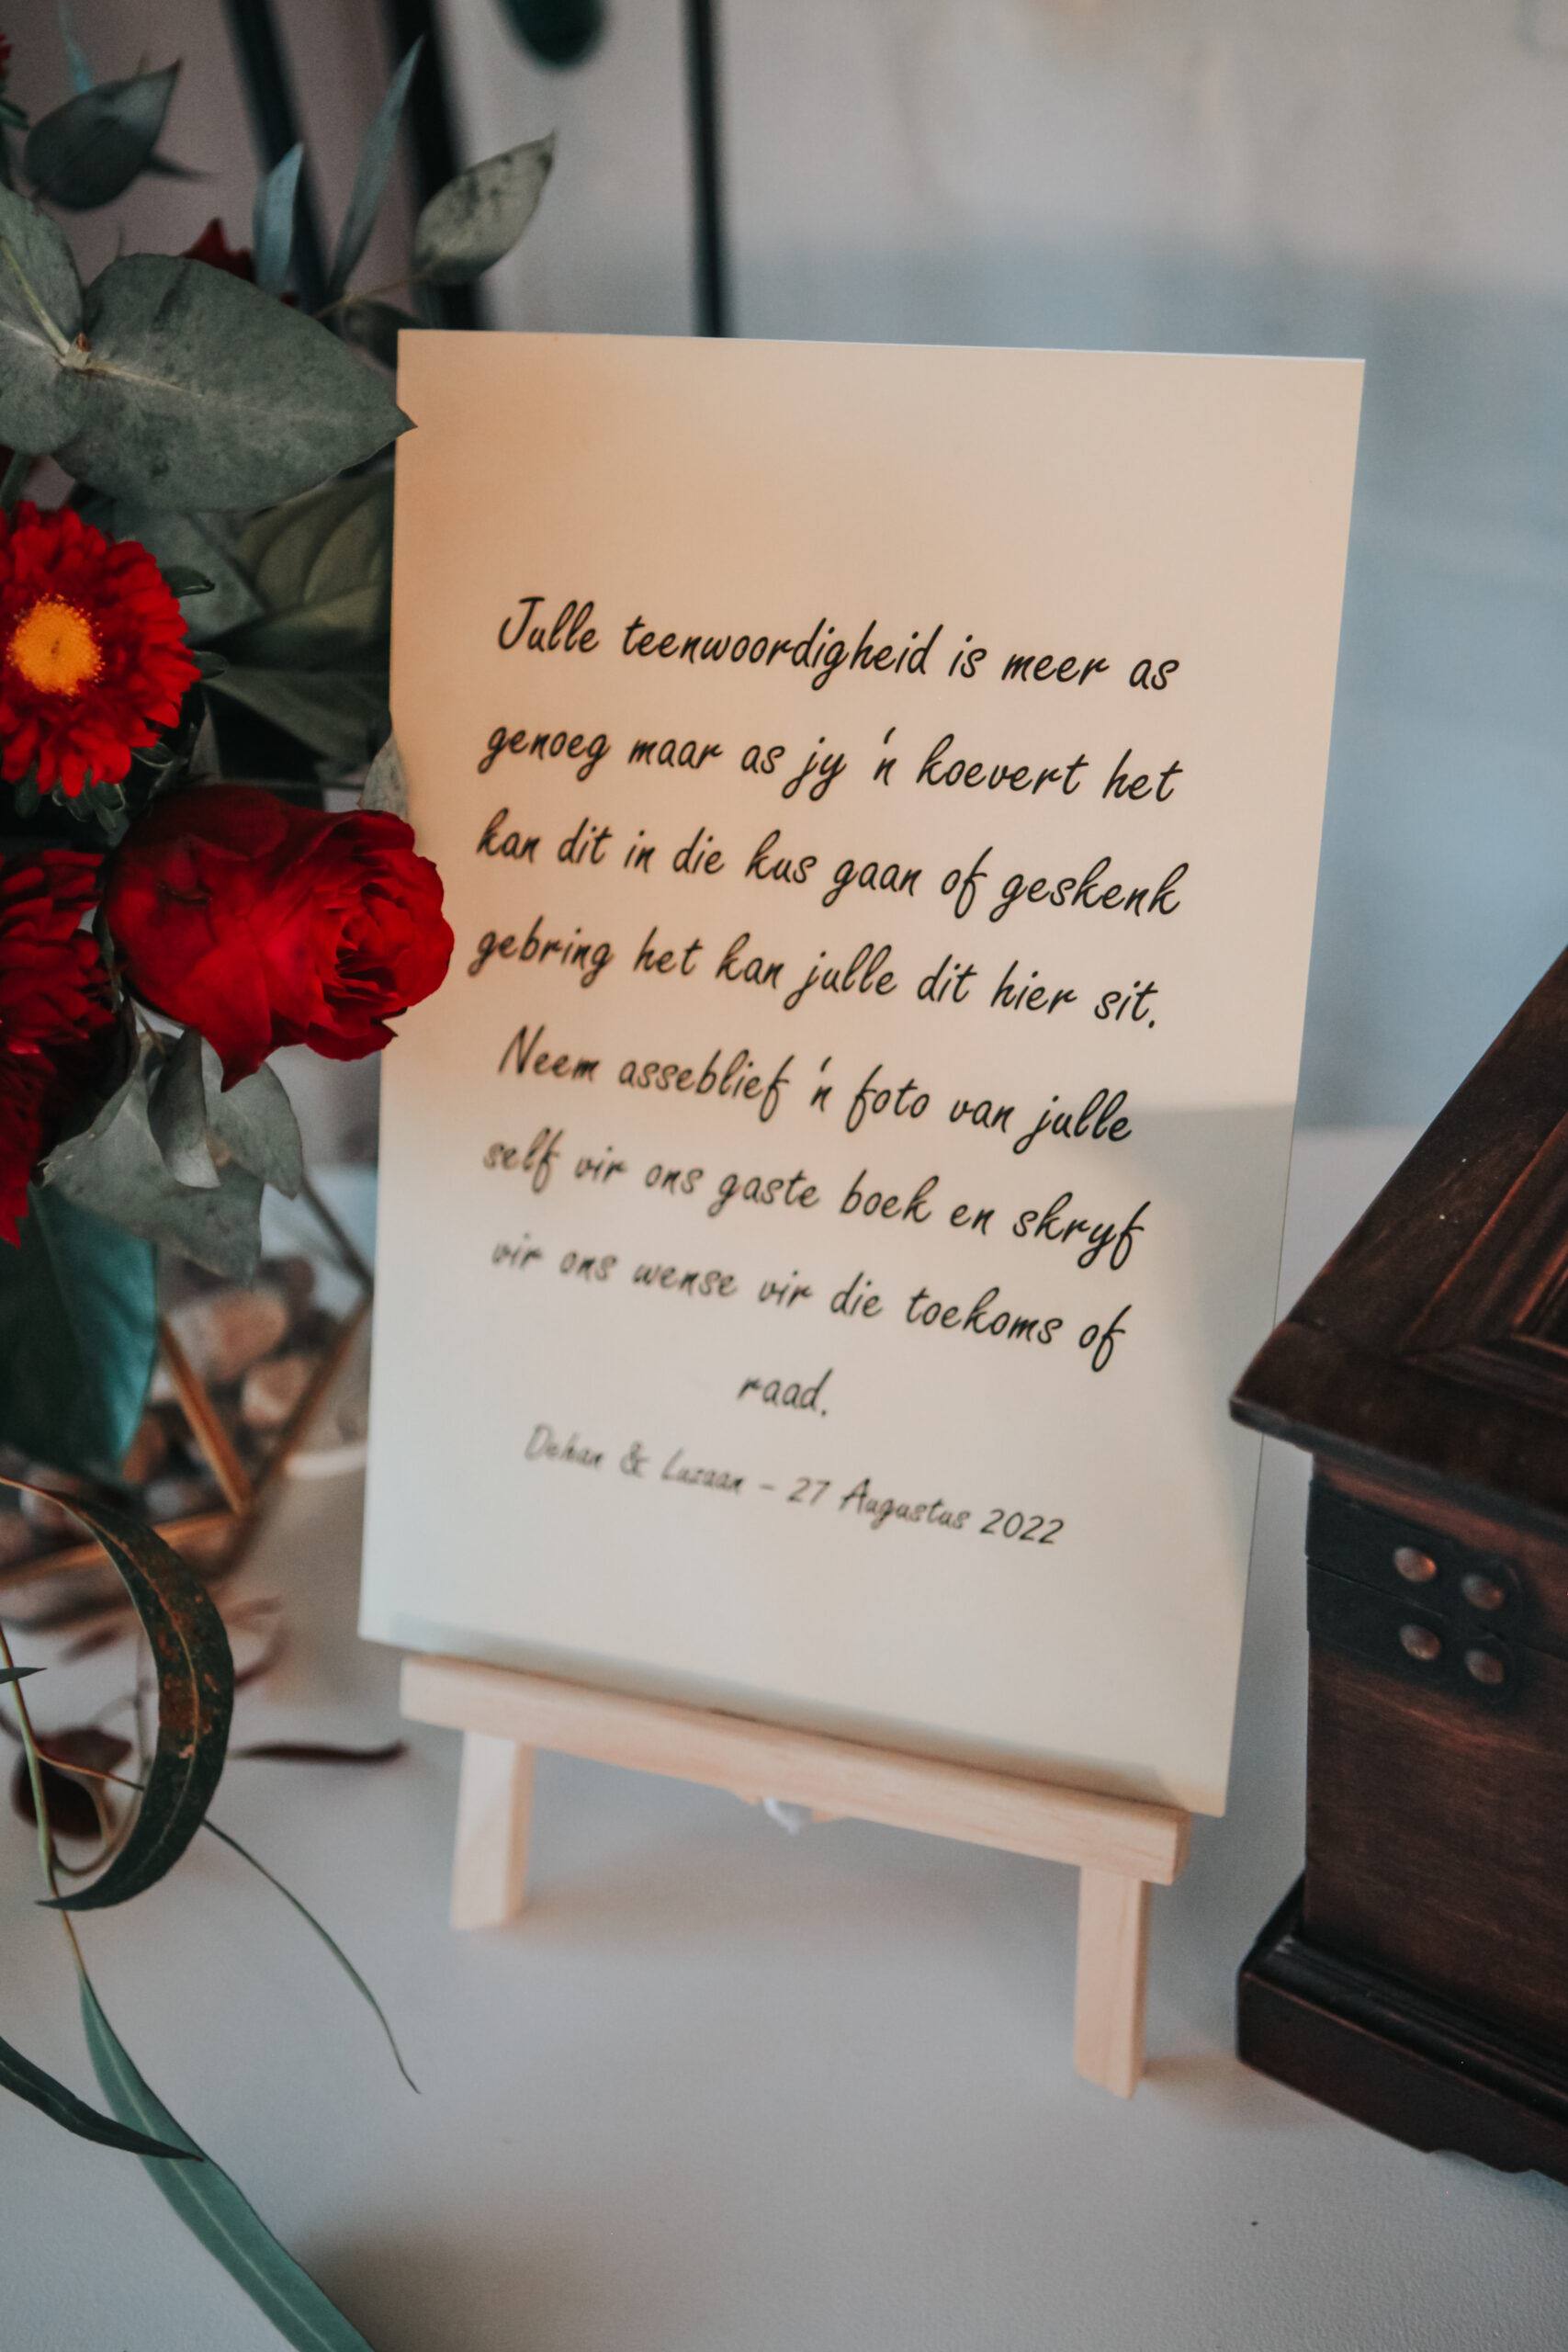 Julle teenwoordigheid is meer as
genoeg maar as jy 'n koevert het
kan dit in die kus gaan of geskenk
gebring het kan julle dit hier sit.
Neem asseblief 'n foto van julle
self vir ons gaste boek en skryf
vir ons wense vir die toekoms of
raad.
Dehan & Luzaan - 27 Augustus 2022